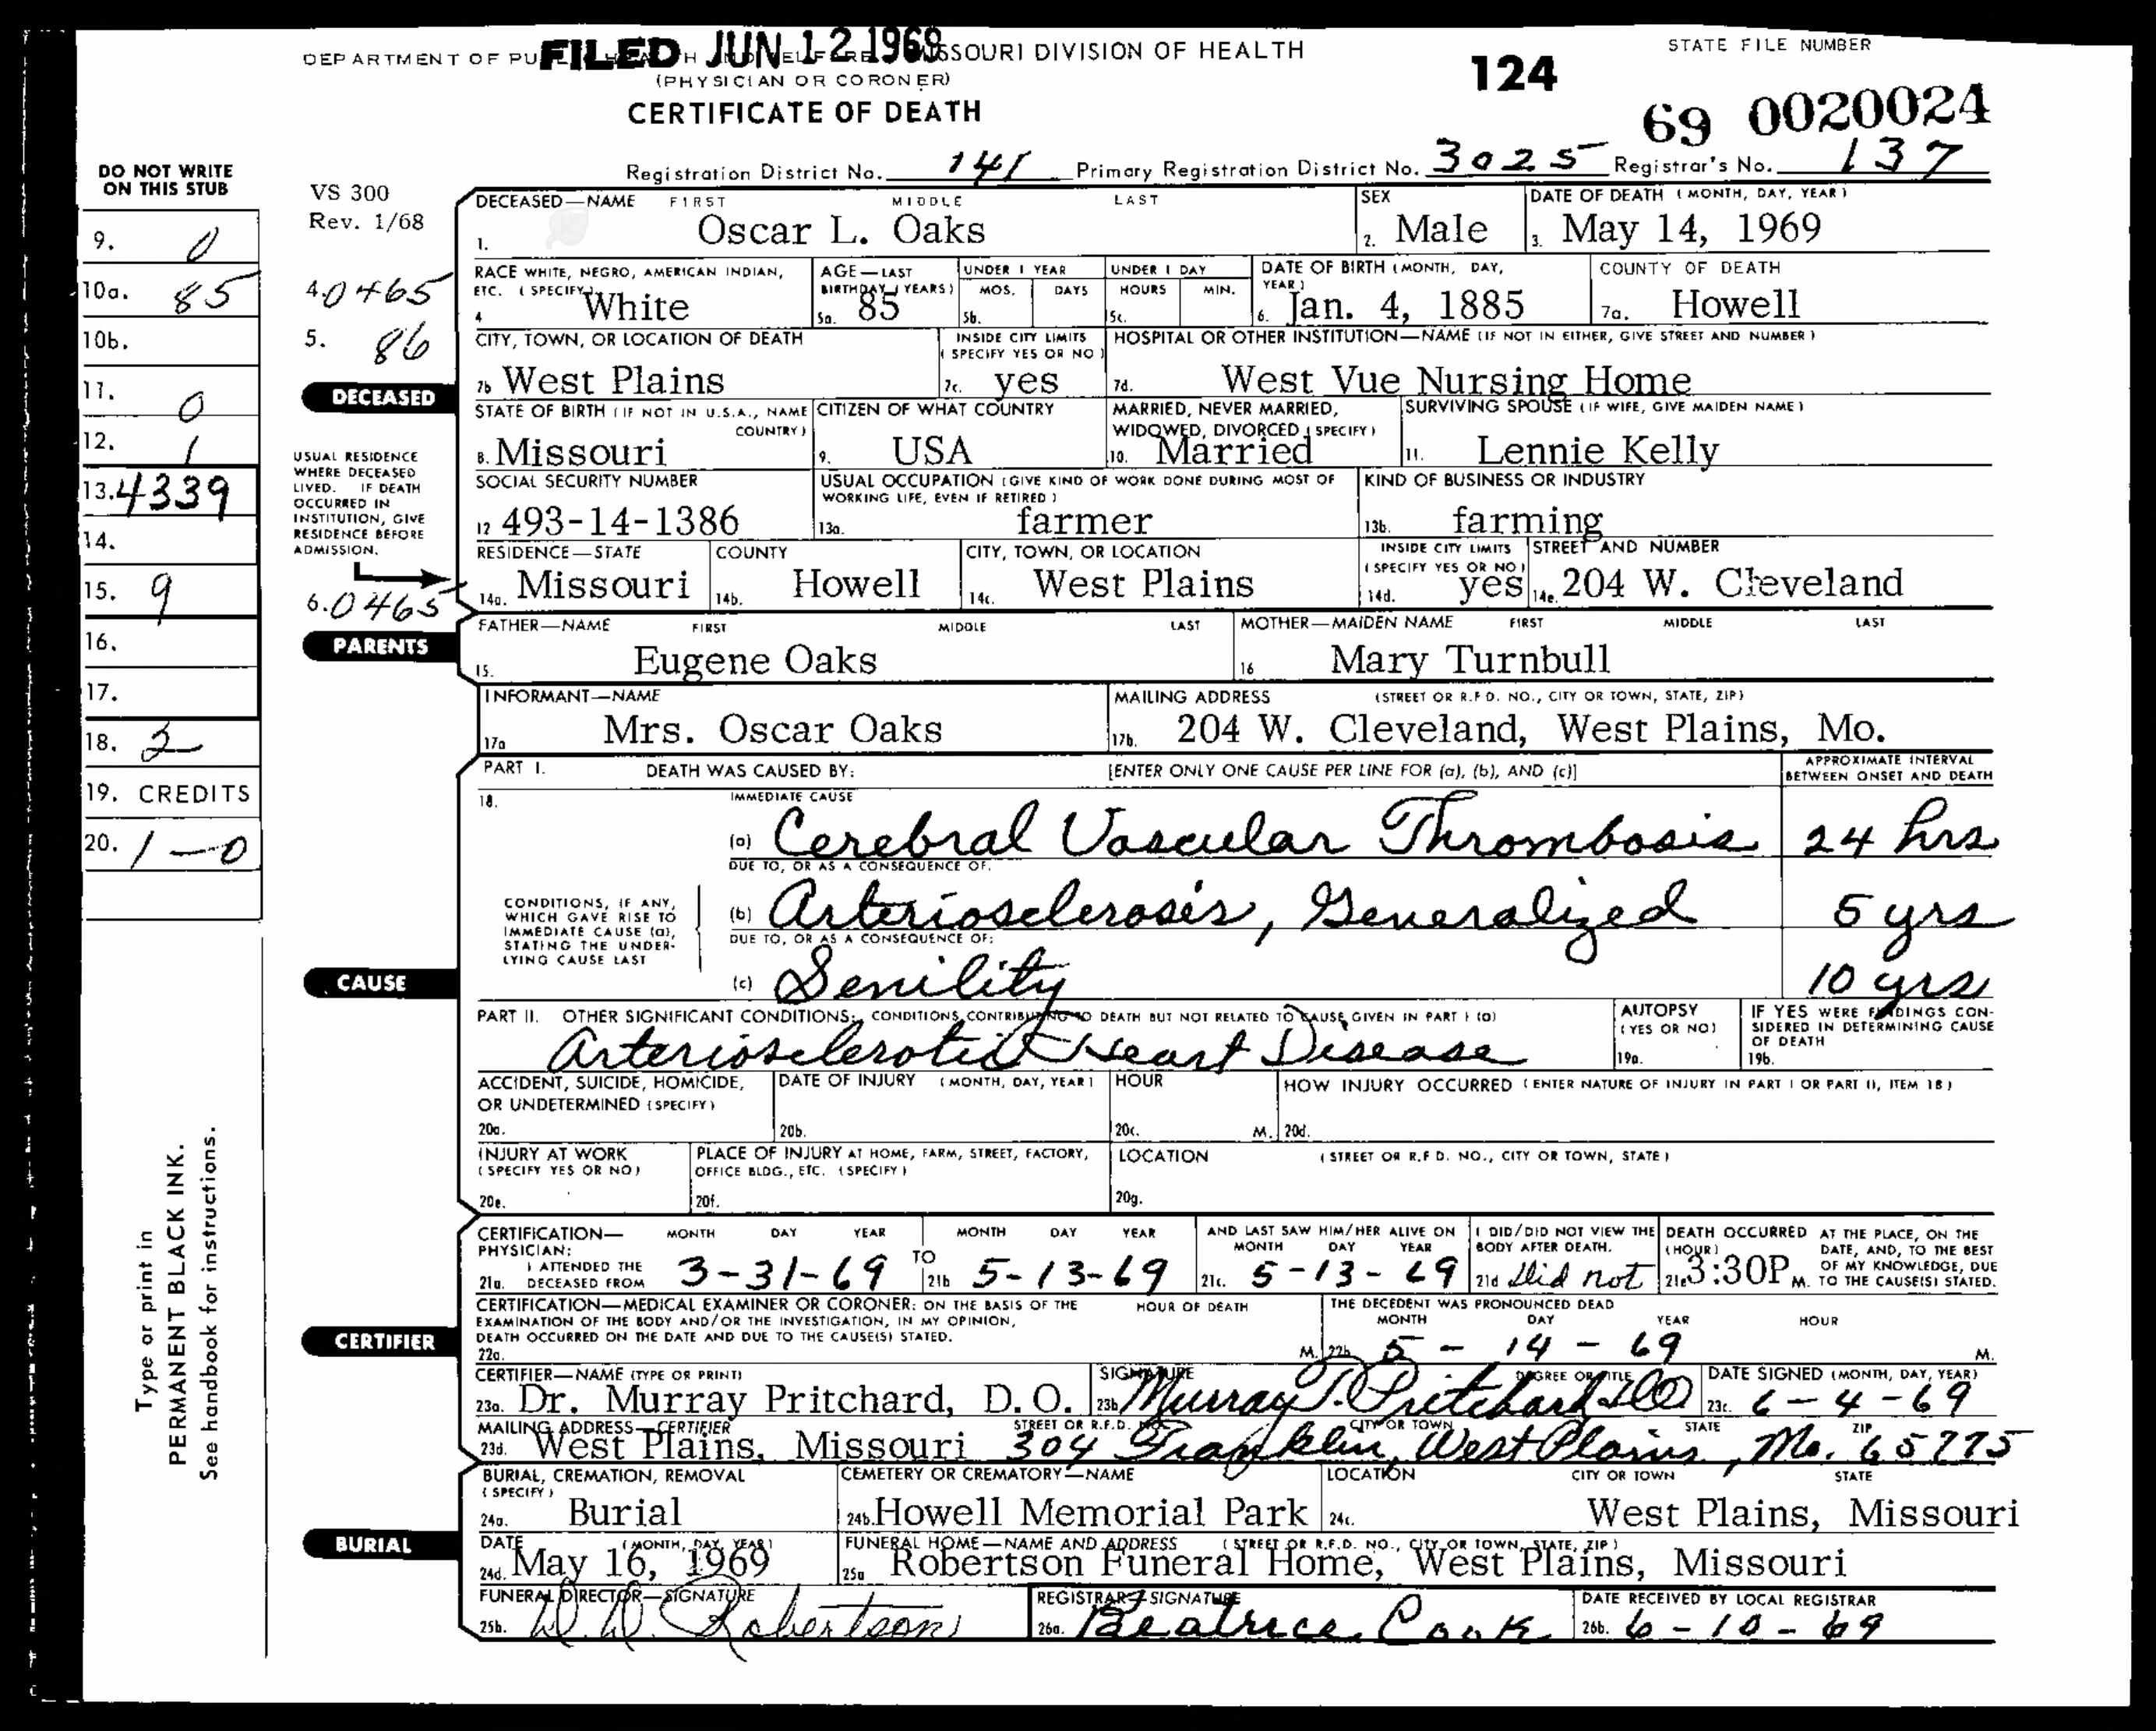 FILED JUN 12 1969
DEPARTMENT OF PUBLIC HEALTH AND WELFARE MISSOURI DIVISION OF HEALTH
(PHYSICIAN OR CORONER)
CERTIFICATE OF DEATH
124
STATE FILE NUMBER
69 0020024
Registration District No. 141 Primary Registration District No. 3025 Registrar's No. 137
DO NOT WRITE
ON THIS STUB
9. 0
10a. 85
10b.
11. 0
12. 1
13. 4339
14.
15. 9
16.
17.
18. 2
19. CREDITS
20. 1-0
Type or print in
PERMANENT BLACK INK.
See handbook for instructions.
VS 300
Rev. 1/68
4. 0465
5. 86
DECEASED
USUAL RESIDENCE
WHERE DECEASED
LIVED. IF DEATH
OCCURRED IN
INSTITUTION, GIVE
RESIDENCE BEFORE
ADMISSION.
6. 0465
DECEASED—NAME FIRST MIDDLE LAST
1. Oscar L. Oaks
SEX
2. Male
DATE OF DEATH (MONTH, DAY, YEAR)
3. May 14, 1969
RACE WHITE, NEGRO, AMERICAN INDIAN,
ETC. (SPECIFY)
4 White
AGE—LAST
BIRTHDAY (YEARS)
5a. 85
UNDER 1 YEAR
MOS. DAYS
5b.
UNDER 1 DAY
HOURS MIN.
5c.
DATE OF BIRTH (MONTH, DAY,
YEAR)
6. Jan. 4, 1885
COUNTY OF DEATH
7a. Howell
CITY, TOWN, OR LOCATION OF DEATH
7b West Plains
INSIDE CITY LIMITS
(SPECIFY YES OR NO)
7c. yes
HOSPITAL OR OTHER INSTITUTION—NAME (IF NOT IN EITHER, GIVE STREET AND NUMBER)
7d. West Vue Nursing Home
STATE OF BIRTH (IF NOT IN U.S.A., NAME
COUNTRY)
8. Missouri
CITIZEN OF WHAT COUNTRY
9. USA
MARRIED, NEVER MARRIED,
WIDOWED, DIVORCED (SPECIFY)
10. Married
SURVIVING SPOUSE (IF WIFE, GIVE MAIDEN NAME)
11. Lennie Kelly
SOCIAL SECURITY NUMBER
12 493-14-1386
USUAL OCCUPATION (GIVE KIND OF WORK DONE DURING MOST OF
WORKING LIFE, EVEN IF RETIRED)
13a. farmer
KIND OF BUSINESS OR INDUSTRY
13b. farming
RESIDENCE—STATE
14a. Missouri
COUNTY
14b. Howell
CITY, TOWN, OR LOCATION
14c. West Plains
INSIDE CITY LIMITS
(SPECIFY YES OR NO)
14d. yes
STREET AND NUMBER
14e. 204 W. Cleveland
PARENTS
FATHER—NAME FIRST MIDDLE LAST
15. Eugene Oaks
MOTHER—MAIDEN NAME FIRST MIDDLE LAST
16 Mary Turnbull
INFORMANT—NAME
17a Mrs. Oscar Oaks
MAILING ADDRESS (STREET OR R.F.D. NO., CITY OR TOWN, STATE, ZIP)
17b. 204 W. Cleveland, West Plains, Mo.
CAUSE
PART I. DEATH WAS CAUSED BY: [ENTER ONLY ONE CAUSE PER LINE FOR (a), (b), AND (c)]
APPROXIMATE INTERVAL
BETWEEN ONSET AND DEATH
18. IMMEDIATE CAUSE
(a) Cerebral Vascular Thrombosis 24 hrs
DUE TO, OR AS A CONSEQUENCE OF:
CONDITIONS, IF ANY,
WHICH GAVE RISE TO
IMMEDIATE CAUSE (a),
STATING THE UNDER-
LYING CAUSE LAST
(b) Arteriosclerosis, Generalized 5 yrs
DUE TO, OR AS A CONSEQUENCE OF:
(c) Senility 10 yrs
PART II. OTHER SIGNIFICANT CONDITIONS: CONDITIONS CONTRIBUTING TO DEATH BUT NOT RELATED TO CAUSE GIVEN IN PART I (a)
Arteriosclerotic Heart Disease
AUTOPSY
(YES OR NO)
19a.
IF YES WERE FINDINGS CON-
SIDERED IN DETERMINING CAUSE
OF DEATH
19b.
ACCIDENT, SUICIDE, HOMICIDE,
OR UNDETERMINED (SPECIFY)
20a.
DATE OF INJURY (MONTH, DAY, YEAR)
20b.
HOUR
20c. M.
HOW INJURY OCCURRED (ENTER NATURE OF INJURY IN PART I OR PART II, ITEM 18)
20d.
INJURY AT WORK
(SPECIFY YES OR NO)
20e.
PLACE OF INJURY AT HOME, FARM, STREET, FACTORY,
OFFICE BLDG., ETC. (SPECIFY)
20f.
LOCATION (STREET OR R.F.D. NO., CITY OR TOWN, STATE)
20g.
CERTIFIER
CERTIFICATION— MONTH DAY YEAR MONTH DAY YEAR
PHYSICIAN:
I ATTENDED THE
21a. DECEASED FROM 3-31-69 TO 21b 5-13-69
AND LAST SAW HIM/HER ALIVE ON
MONTH DAY YEAR
21c. 5-13-69
I DID/DID NOT VIEW THE
BODY AFTER DEATH.
21d Did not
DEATH OCCURRED
(HOUR)
21e 3:30P M.
AT THE PLACE, ON THE
DATE, AND, TO THE BEST
OF MY KNOWLEDGE, DUE
TO THE CAUSE(S) STATED.
CERTIFICATION—MEDICAL EXAMINER OR CORONER: ON THE BASIS OF THE
EXAMINATION OF THE BODY AND/OR THE INVESTIGATION, IN MY OPINION,
DEATH OCCURRED ON THE DATE AND DUE TO THE CAUSE(S) STATED.
22a.
HOUR OF DEATH
M.
THE DECEDENT WAS PRONOUNCED DEAD
MONTH DAY YEAR HOUR
22b 5 - 14 - 69 M.
CERTIFIER—NAME (TYPE OR PRINT)
23a. Dr. Murray Pritchard, D.O.
SIGNATURE DEGREE OR TITLE
23b Murray T. Pritchard DO
DATE SIGNED (MONTH, DAY, YEAR)
23c. 6-4-69
MAILING ADDRESS—CERTIFIER STREET OR R.F.D. NO. CITY OR TOWN STATE ZIP
23d. West Plains, Missouri 304 Franklin, West Plains, Mo. 65775
BURIAL
BURIAL, CREMATION, REMOVAL
(SPECIFY)
24a. Burial
CEMETERY OR CREMATORY—NAME
24b. Howell Memorial Park
LOCATION CITY OR TOWN STATE
24c. West Plains, Missouri
DATE (MONTH, DAY, YEAR)
24d. May 16, 1969
FUNERAL HOME—NAME AND ADDRESS (STREET OR R.F.D. NO., CITY OR TOWN, STATE, ZIP)
25a Robertson Funeral Home, West Plains, Missouri
FUNERAL DIRECTOR—SIGNATURE
25b. Robertson
REGISTRAR—SIGNATURE
26a. Beatrice Cook
DATE RECEIVED BY LOCAL REGISTRAR
26b. 6-10-69